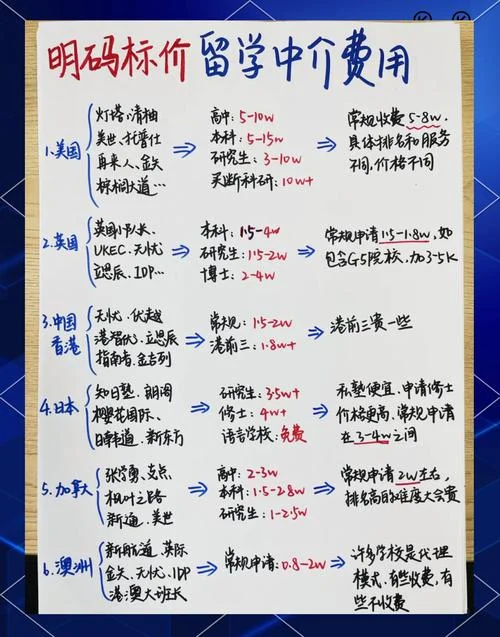 明码标价 留学中介费用
1.美国
灯塔、清柚
美世、托普仕
再来人、金矢
棕榈大道…
高中：5-10w
本科：5-15w
研究生：3-10w
买断科研：10w+
常规收费5-8w，
具体排名和服务
不同，价格不同
2.英国
英国小队长、
UKEC、无忧
立思辰、IDP…
本科：1.5-4w
研究生：1.5-2w
博士：2-4w
常规申请1.5-1.8w，如
包含G5院校，加3-5K
3.中国
香港
无忧、优越
港智优、立思辰
指南者、金吉列
常规：1.5-2w
港前三：1.8w+
港前三贵一些
4.日本
知日塾、朝阁
樱花国际、
日本道、新东方
研究生：3.5w+
修士：4w+
语言学校：免费
私塾便宜、申请修士
价格更高、常规申请
在3-4w之间
5.加拿大
支点
枫叶之路
新通、美世
高中：2-3w
本科：1.5-2.8w
研究生：1-2.5w
常规申请2w左右，
排名高的难度大会贵
6.澳洲
新航道、英际
金矢、无忧、IDP
港澳大班长
常规申请：0.8-2w
许多学校是代理
模式、有些收费，有
些不收费